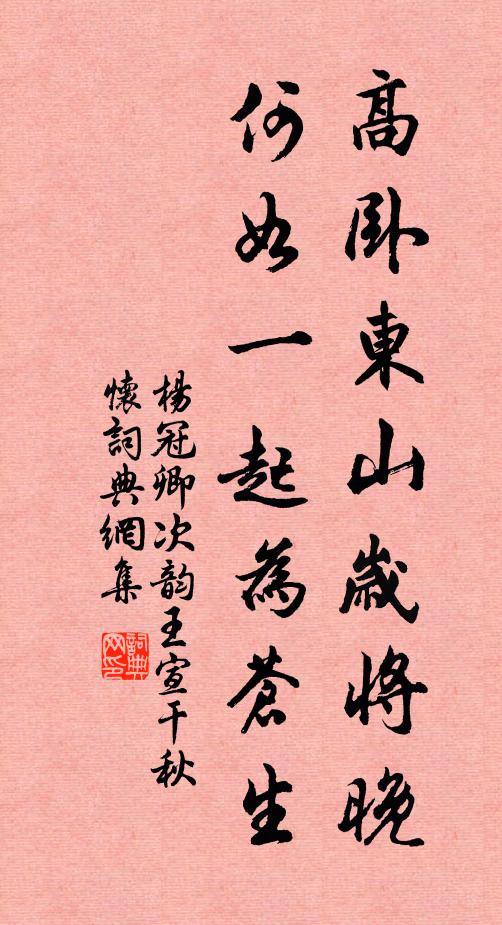 高臥東山歲將晚
何如一起為蒼生
楊冠卿次韵王宣干秋
懷詞典網集
詞典網印